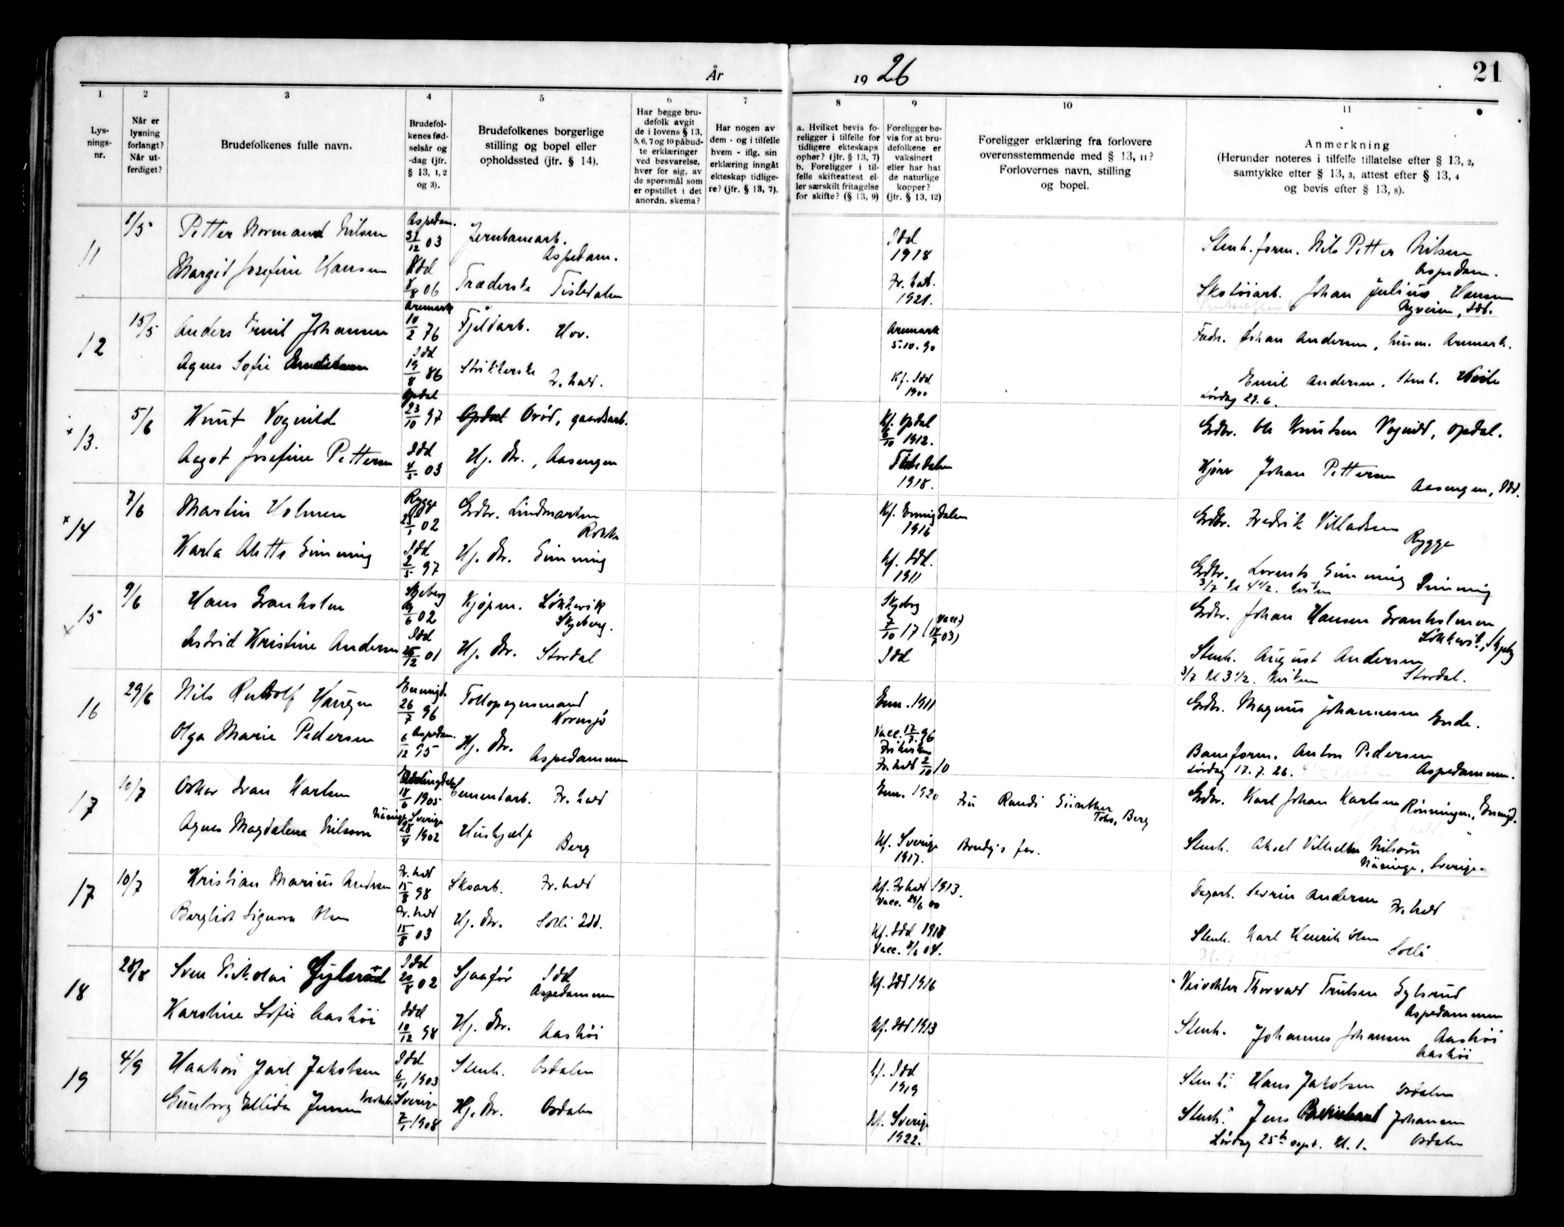 År 1926
21
1 2 3 4 5 6 7 8 9 10 11
Lysnings-nr.
Når er lysning forlangt? Når utferdiget?
Brudefolkenes fulle navn.
Brudefolkenes fødselsår og -dag (jfr. § 13, 1, 2 og 3).
Brudefolkenes borgerlige stilling og bopel eller opholdssted (jfr. § 14).
Har begge brudefolk avgit de i lovens § 13, 5, 6, 7 og 10 påbudte erklæringer ved besvarelse, hver for sig, av de spørsmål som er opstillet i det anordn. skema?
Har nogen av dem - og i tilfelle hvem - iflg. sin erklæring inngått ekteskap tidligere? (jfr. § 13, 7).
a. Hvilket bevis foreligger i tilfelle for tidligere ekteskaps ophør? (jfr. § 13, 7) b. Foreligger i tilfelle skifteattest eller særskilt fritagelse for skifte? (§ 13, 9)
Foreligger bevis for at brudefolkene er vaksinert eller har hat de naturlige kopper? (jfr. § 13, 12)
Foreligger erklæring fra forlovere overensstemmende med § 13, 11? Forlovernes navn, stilling og bopel.
Anmerkning (Herunder noteres i tilfelle tillatelse efter § 13, 2, samtykke efter § 13, 3, attest efter § 13, 4 og bevis efter § 13, 8).
11 1/5 Petter Normand Nilsen Aspedam. 31/12 03 Jernbanearb. Aspedam. Idd 1918 Stenh. form. Nils Petter Nilsen Aspedam.
Margit Josefine Hansen Idd 8/8 06 Træderske Tistedalen Fr.hald. 1921. Skotøiarb. Johan Julius Hansen Nyveien, Idd.
12 15/5 Anders Emil Johansen Aremark 10/2 76 Fjeldarb. Hov. Aremark 5-10-90 Fadr. Johan Andersen, husm. Aremark.
Agnes Sofie Andersen Idd 19/8 86 Strikkerske Fr.hald. Kf. Idd 1900 Emil Andersen, Stenh.
13. 5/6 Knut Vognild Opdal 23/10 97 Ovød, gaardsarb. Kf. Opdal 6/10 1912. Lørdag 29.6. Grdbr. Ole Knutsen Vognild, Opdal.
Aagot Josefine Pettersen Idd 4/5 03 Hj. dtr., Aasengen Tistedalen 1918. Kjører Johan Pettersen Aasengen, Idd.
14 7/6 Martin Holmen Rygge 02 Grdbr. Lindmarken Rokke Kf. Enningdalen 1916 Grdbr. Fredrik Villadsen Rygge
Karla Alette Gimming Idd 2/5 97 Hj. dtr. Gimming Kf. Idd. 1911 Grdbr. Lorents Gimming Gimming
15 9/6 Hans Granholen Skjeberg 6 02 Kjøpm. Løkkevik Skjeberg. Skjeberg 7/10 17 (vacc.) 3/7 kl 4 1/2. Kirken Grdbr. Johan Hansen Granholmen Løkkevik, Skjeberg
Astrid Kristine Andersen Idd 25/12 01 Hj. dtr. Stordal Idd Stenh. August Andersen Stordal.
16 29/6 Nils Rudolf Haugen Enningd. 26/7 96 Tollopsynsmand Kornsjø Enn. 1911 3/7 kl 3 1/2. Kirken Grdbr. Magnus Johannesen Ende.
Olga Marie Pedersen Aspedam 6/12 95 Hj. dtr. Aspedammen Vacc. 17/7 96 Frikirken Fr.hald 2/10 10 Baneform. Anton Pedersen Aspedammen.
17 10/7 Oskar Ivan Karlsen Enningdal 18/6 1905 Cementarb. Fr.hald Enn. 1920 Fru Randi Günther Berg Lørdag 17.7.26. Grdbr. Karl Johan Karlsen Rönningen, Enningd.
Agnes Magdalena Nilsson Näsinge Sverige 25/4 1902 Hushjælp Berg Kf. Sverige 1917. Brudg's far. Stenh. Aksel Vilhelm Nilsson Näsinge, Sverige.
17 10/7 Kristian Marius Andersen Fr.hald 15/8 98 Skoarb. Fr.hald Kf. Fr.hald 1913. Vacc. 24/6 00 Dagarb. Severin Andersen Fr.hald
Bergliot Signora Olsen Fr.hald 15/8 03 Hj. dtr. Solli Idd. Kf. Idd 1918 Vacc. 9/6 04. Stenh. Karl Henrik Olsen Solli
18 28/8 Sven Nikolai Gylsrud Idd 20/8 02 Sjaafør Idd Aspedammen Kf. Idd 1916 Veivokter Thorvald Trulsen Gylsrud Aspedammen
Karoline Sofie Aashøi Idd 10/12 98 Hj. dtr. Aashøi Kf. Idd 1913 Stenh. Johannes Johansen Aashøi Aashøi
19 4/9 Haakon Jarl Jakobsen Idd 6/11 1903 Stenh. Osdalen Kf. Idd 1919 Stenh. Hans Jakobsen Osdalen
Gunborg Ellida Jensen Sverige 7/1 1908 Hj. dtr. Osdalen Kf. Sverige 1922. Stenh. Jens Johansen Osdalen
Lørdag 25de sept. kl. 1.